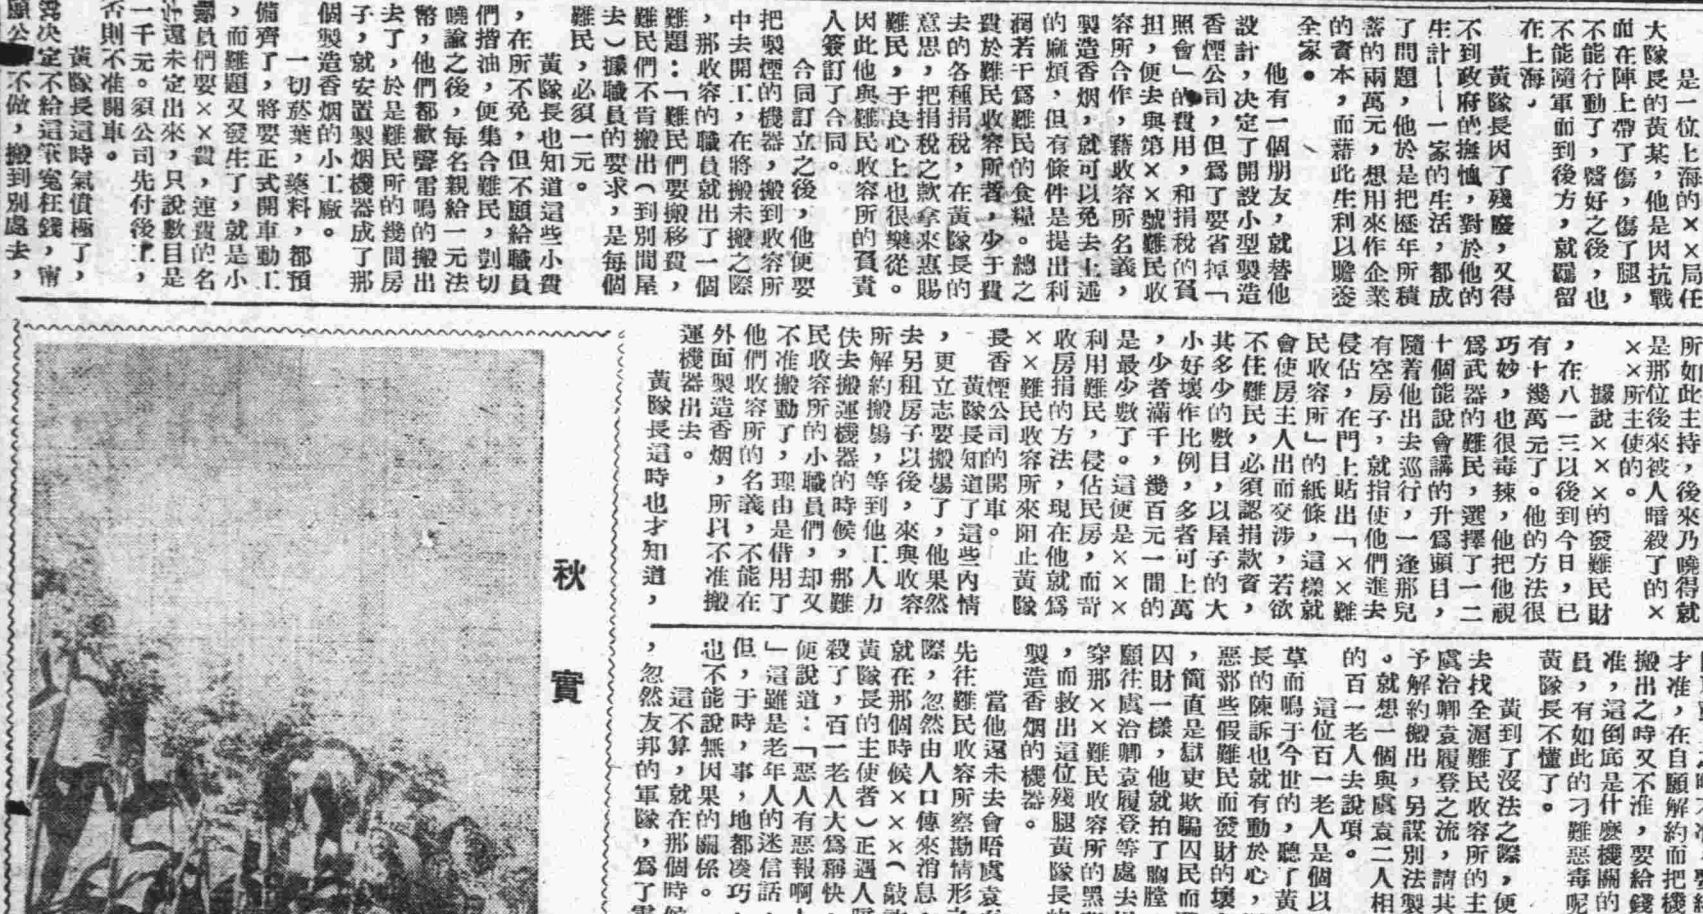 是一位上海的××局任
大隊長的黃某，他是因抗戰
而在陣上帶了傷，傷了腿，
不能行動了，醫好之後，也
不能隨軍而到後方，就羈留
在上海。
黃隊長因了殘廢，又得
不到政府的撫恤，對於他的
生計——一家的生活，都成
了問題，他於是把歷年所積
蓄的兩萬元，想用來作企業
的資本，而藉此生利以贍養
全家。
他有一個朋友，就替他
設計，決定了開設小型製造
香煙公司，但爲了要省掉「
照會」的費用，和捐稅的負
担，便去與第××號難民收
容所合作，藉收容所名義，
製造香烟，就可以免去上述
的麻煩，但有條件是提出利
潤若干爲難民的食糧。總之
費於難民收容所者，少于費
去的各種捐稅，在黃隊長的
意思，把捐稅之款拿來惠賜
難民，于良心上也很樂從。
因此他與難民收容所的負責
人簽訂了合同。
合同訂立之後，他便要
把製煙的機器，搬到收容所
中去開工，在將搬未搬之際
，那收容的職員就出了一個
難題：「難民們要搬移費，
難民們不肯搬出（到別間屋
去）據職員的要求，是每個
難民，必須一元。
黃隊長也知道這些小費
，在所不免，但不願給職員
們揩油，便集合難民，剴切
曉諭之後，每名親給一元法
幣，他們都歡聲雷鳴的搬出
去了，於是難民所的幾間房
子，就安置製烟機器成了那
個製造香烟的小工廠。
一切菸葉，藥料，都預
備齊了，將要正式開車動工
，而難題又發生了，就是小
職員們要××費，連費的名
還未定出來，只說數目是
一千元。須公司先付後工，
否則不准開車。
黃隊長這時氣憤極了，
决定不給這筆寃枉錢，甯
願公不做，搬到別處去，
所如此主持，後來乃曉得就
是那位後來被人暗殺了的×
××所主使的。
據說×××的發難民財
，在八一三以後到今日，已
有十幾萬元了。他的方法很
巧妙，也很毒辣，他把他視
爲武器的難民，選擇了一二
十個能說會講的升爲頭目，
隨着他出去巡行，一逢那兒
有空房子，就指使他們進去
侵佔，在門上貼出「××難
民收容所」的紙條，這樣就
會使房主人出而交涉，若欲
不住難民，必須認捐款資，
其多少的數目，以屋子的大
小好壞作比例，多者可上萬
，少者滿千，幾百元一間的
是最少數了。這便是×××
利用難民，侵佔民房，而苛
收房捐的方法，現在他就爲
××難民收容所來阻止黃隊
長香煙公司的開車。
黃隊長知道了這些內情
，更立志要搬塲了，他果然
去另租房子以後，來與收容
所解約搬塲，等到他工人力
伕去搬運機器的時候，那難
民收容所的小職員們，却又
不准搬動了，理由是借用了
他們收容所的名義，不能在
外面製造香烟，所以不准搬
運機器出去。
黃隊長這時也才知道，
才准，在自願解約而把機
搬出之時又不准，要給錢
准，這倒底是什麽機關的
員，有如此的刁難惡毒呢
黃隊長不懂了。
黃到了沒法之際，便
去找全滬難民收容所的主
虞洽卿袁履登之流，請其
予解約搬出，另謀別法製
。就想一個與虞袁二人相
的百一老人去說項。
這位百一老人是個以
草而鳴于今世的，聽了黃
長的陳訴也就有動於心，
惡那些假難民而發財的壞
，簡直是獄吏欺騙囚民而
囚財一樣，他就拍了胸膛
願往虞洽卿袁履登等處去
穿那××難民收容所的黑
，而救出這位殘腿黃隊長的
製造香烟的機器。
當他還未去會晤虞袁
先往難民收容所察勘情形
際，忽然由人口傳來消息
就在那個時候×××（敲
黃隊長的主使者）正遇人
殺了，百一老人大爲稱快
便說道：「惡人有惡報啊
」這雖是老年人的迷信話，
但，于時，事，地都凑巧，
也不能說無因果的關係。
這不算，就在那個時候
，忽然友邦的軍隊，爲了
秋實